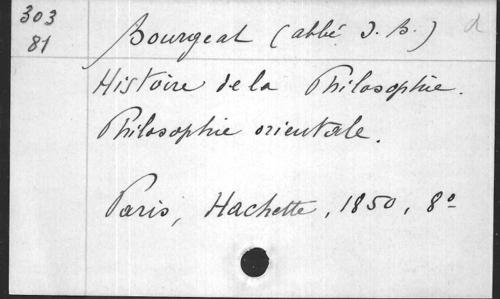 303
81
Bourgeat (abbé J. B.) d
Histoire de la Philosophie.
Philosophie orientale.
Paris, Hachette, 1850, 8º